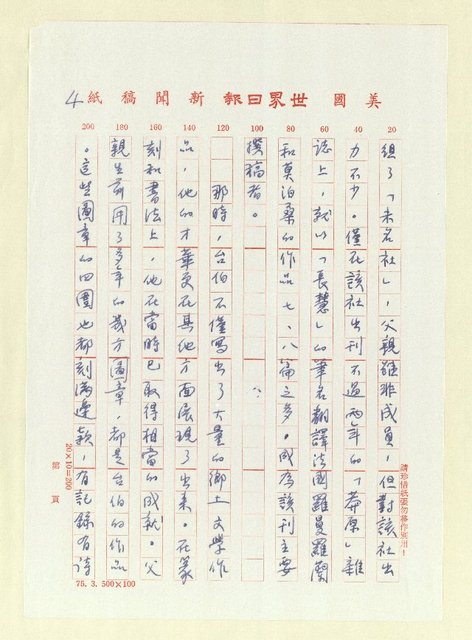 美國世界日報新聞稿紙
4
20 40 60 80 100 120 140 160 180 200
組了「未名社」，父親雖非成員，但對該社出
力不少。僅在該社出刊不過兩年的「莽原」雜
誌上，就以「長慧」的筆名翻譯法國羅曼羅蘭
和莫泊桑的作品七、八篇之多。成為該刊主要
撰稿者。
那時，台伯不僅寫出了大量的鄉土文學作
品，他的才華更在其他方面展現了出來。在篆
刻和書法上，他在當時已取得相當的成就。父
親生前用了多年的幾方圖章，都是台伯的作品
。這些圖章的四圍也都刻滿邊款，有記錄有詩
請珍惜紙張勿移作別用！
20×10=200
第 頁
75. 3. 500×100